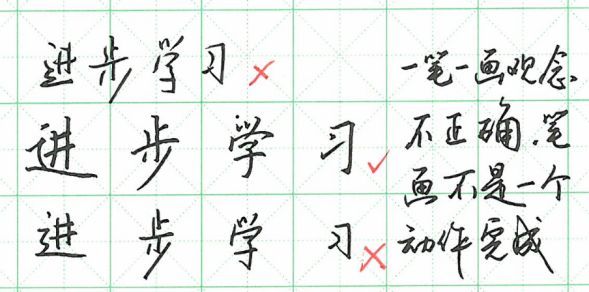 进步学习 ×
一笔一画观念
进步学习 ✓
不正确.笔
画不是一个
进步学习 ×
动作完成